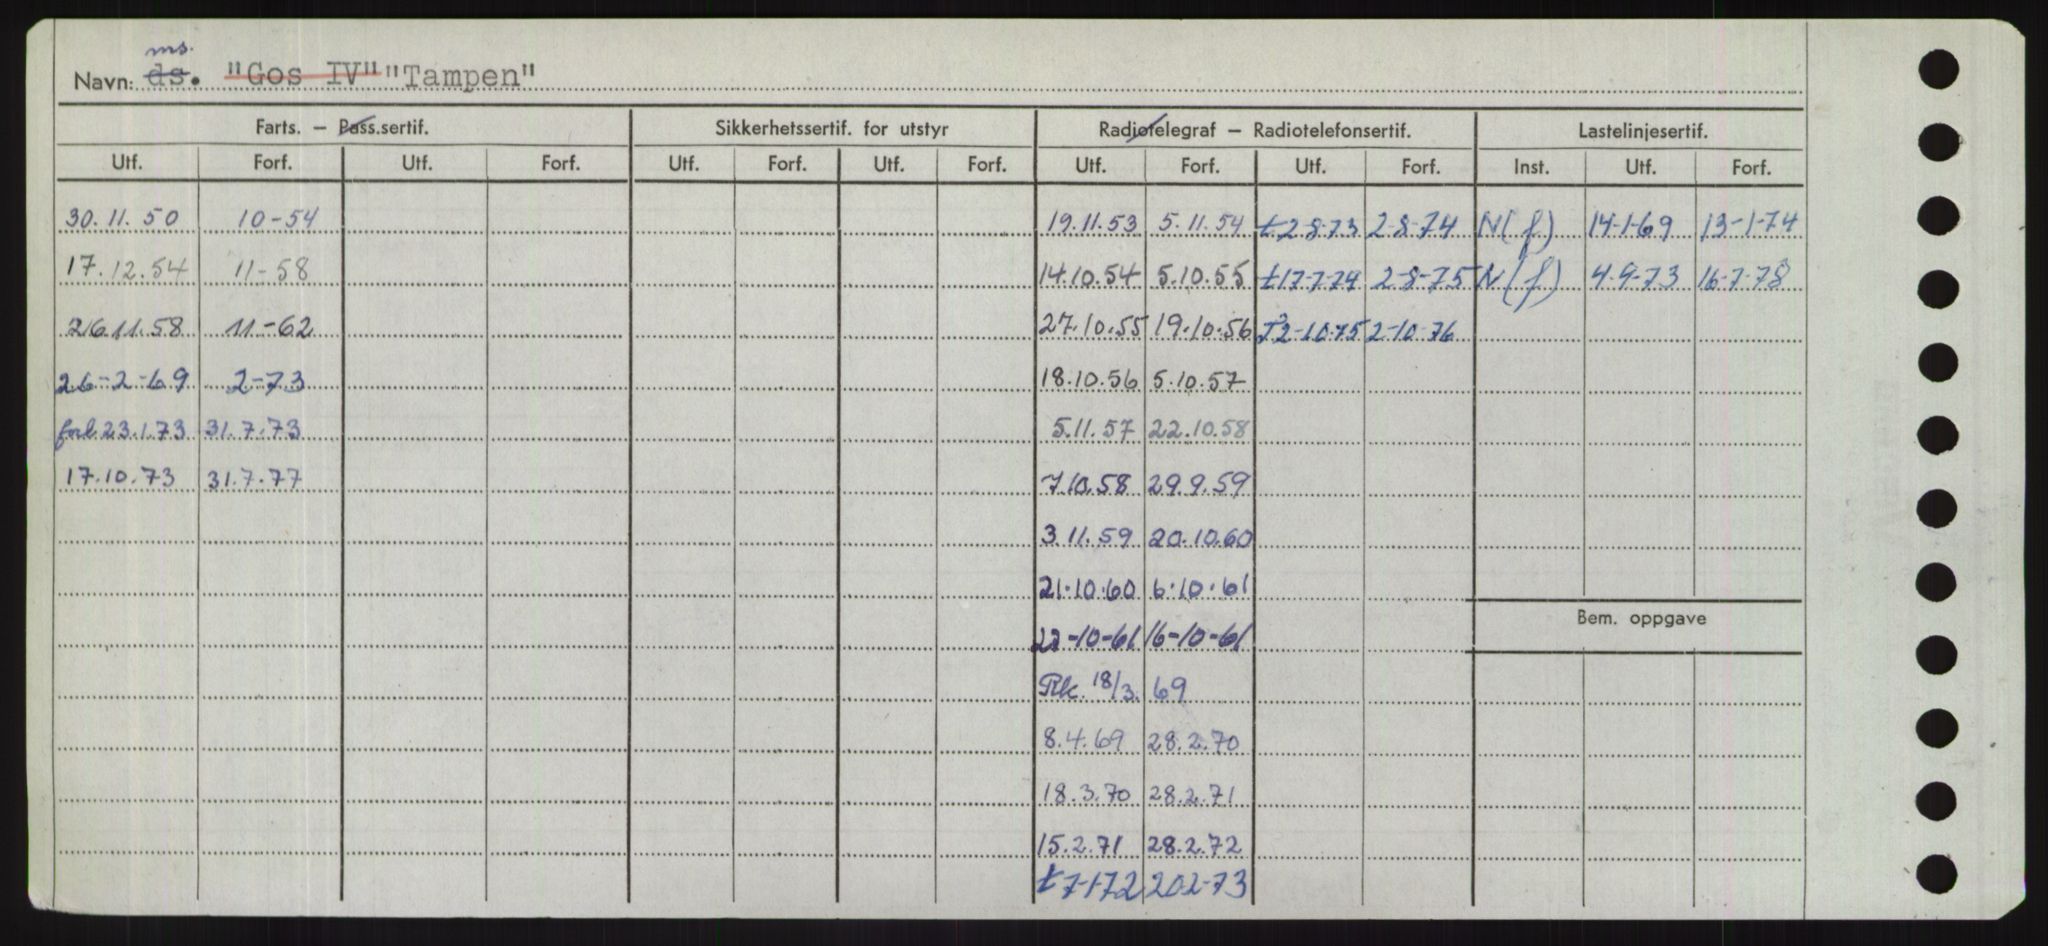 ms.
Navn: ds. "Gos IV" "Tampen"
Farts. – Pass.sertif. Sikkerhetssertif. for utstyr Radiotelegraf – Radiotelefonsertif. Lastelinjesertif.
Utf. Forf. Utf. Forf. Utf. Forf. Utf. Forf. Utf. Forf. Utf. Forf. Inst. Utf. Forf.
30.11.50 10-54 19.11.53 5.11.54 t2-8-73 2-8-74 N(f) 14-1-69 13-1-74
17.12.54 11-58 14.10.54 5.10.55 t17-7-74 2-8-75 N(f) 4-9-73 16-7-78
26.11.58 11-62 27.10.55 19.10.56 T2-10-75 2-10-76
26-2-69 2-73 18.10.56 5.10.57
forl 23.1.73 31.7.73 5.11.57 22.10.58
17.10.73 31.7.77 7.10.58 29.9.59
3.11.59 20.10.60
21.10.60 6.10.61
-10-61 16-10-61
Bem. oppgave
Rk. 18/3. 69
8.4.69 28.2.70
18.3.70 28.2.71
15.2.71 28.2.72
t7-1-72 20.2-73